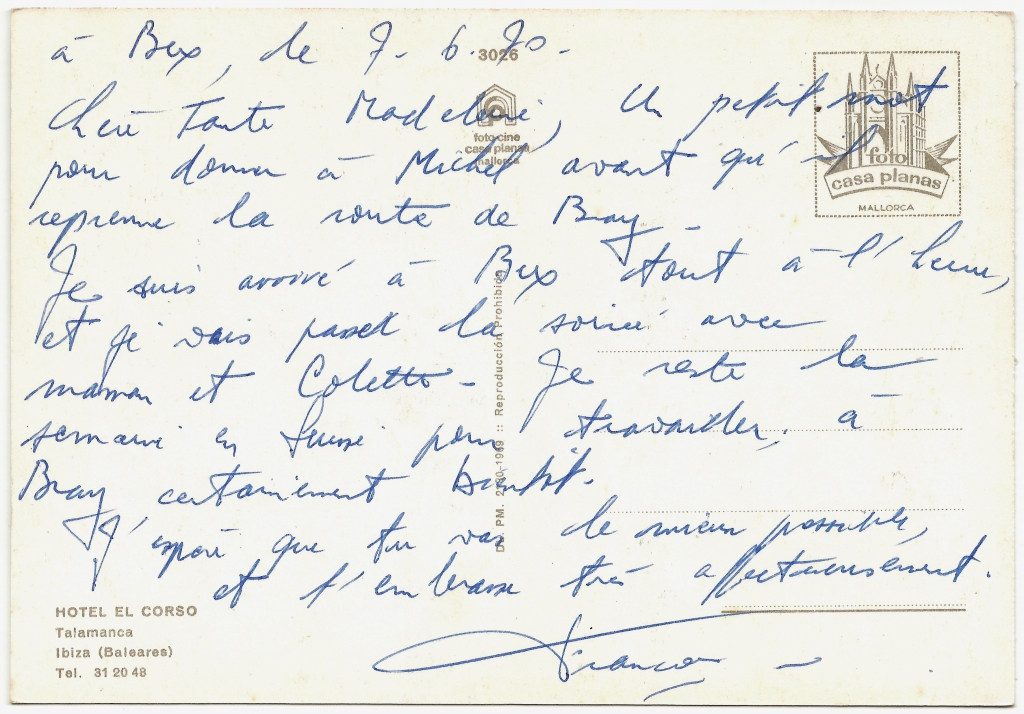 à Bex, le 7.6.70.
3026
Chère Tante Madeleine, Un petit mot
foto-cine
casa planas
mallorca
pour donner à Michel avant qu'il
reprenne la route de Bray.
foto
casa planas
MALLORCA
Je suis arrivé à Bex tout à l'heure,
et je vais passer la soirée avec
maman et Colette - Je reste la
semaine en Suisse pour travailler, à
Bray certainement bientôt.
J'espère que tu vas le mieux possible,
et t'embrasse très affectueusement.
Franço
Dp. PM. -1969 :: Reproducción Prohibida
HOTEL EL CORSO
Talamanca
Ibiza (Baleares)
Tel. 31 20 48